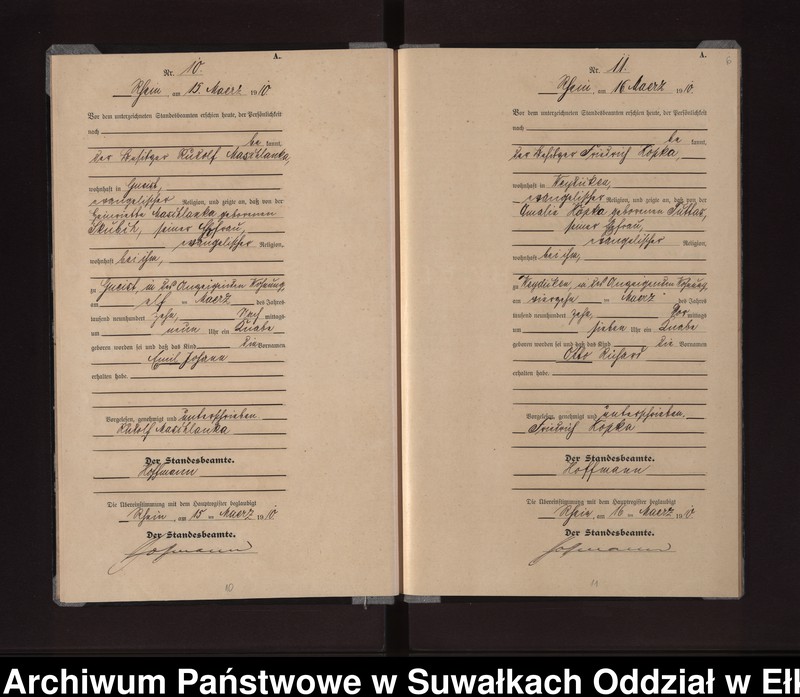 A.
Nr. 10.
Rhein, am 15. Maerz 1910.
Vor dem unterzeichneten Standesbeamten erschien heute, der Persönlichkeit
nach
be kannt,
der Besitzer Rudolf Masitlanka,
wohnhaft in Gneist,
evangelischer Religion, und zeigte an, daß von der
Henriette Masitlanka geborenen
Skubich, seiner Ehefrau,
evangelischer Religion,
wohnhaft bei ihm,
zu Gneist, in des Anzeigenden Wohnung,
am elf ten Maerz des Jahres
tausend neunhundert zehn, Nach mittags
um neun Uhr ein Knabe
geboren worden sei und daß das Kind die Vornamen
Emil Johann
erhalten habe.
Vorgelesen, genehmigt und unterschrieben
Rudolf Masitlanka
Der Standesbeamte.
Hoffmann
Die Übereinstimmung mit dem Hauptregister beglaubigt
Rhein, am 15 ten Maerz 1910.
Der Standesbeamte.
Hoffmann
10
A.
6
Nr. 11.
Rhein, am 16 Maerz 1910.
Vor dem unterzeichneten Standesbeamten erschien heute, der Persönlichkeit
nach
be kannt,
der Besitzer Friedrich Kopka,
wohnhaft in
evangelischer Religion, und zeigte an, daß von der
Amalie Kopka geborenen
seiner Ehefrau,
evangelischer Religion,
wohnhaft bei ihm,
zu in des Anzeigenden Wohnung,
am vierzehn ten Maerz des Jahres
tausend neunhundert zehn, Vor mittags
um sieben Uhr ein Knabe
geboren worden sei und daß das Kind die Vornamen
Otto Richard
erhalten habe.
Vorgelesen, genehmigt und unterschrieben.
Friedrich Kopka
Der Standesbeamte.
Hoffmann
Die Übereinstimmung mit dem Hauptregister beglaubigt
Rhein, am 16 ten Maerz 1910.
Der Standesbeamte.
Hoffmann
11
Archiwum Państwowe w Suwałkach Oddział w Eł